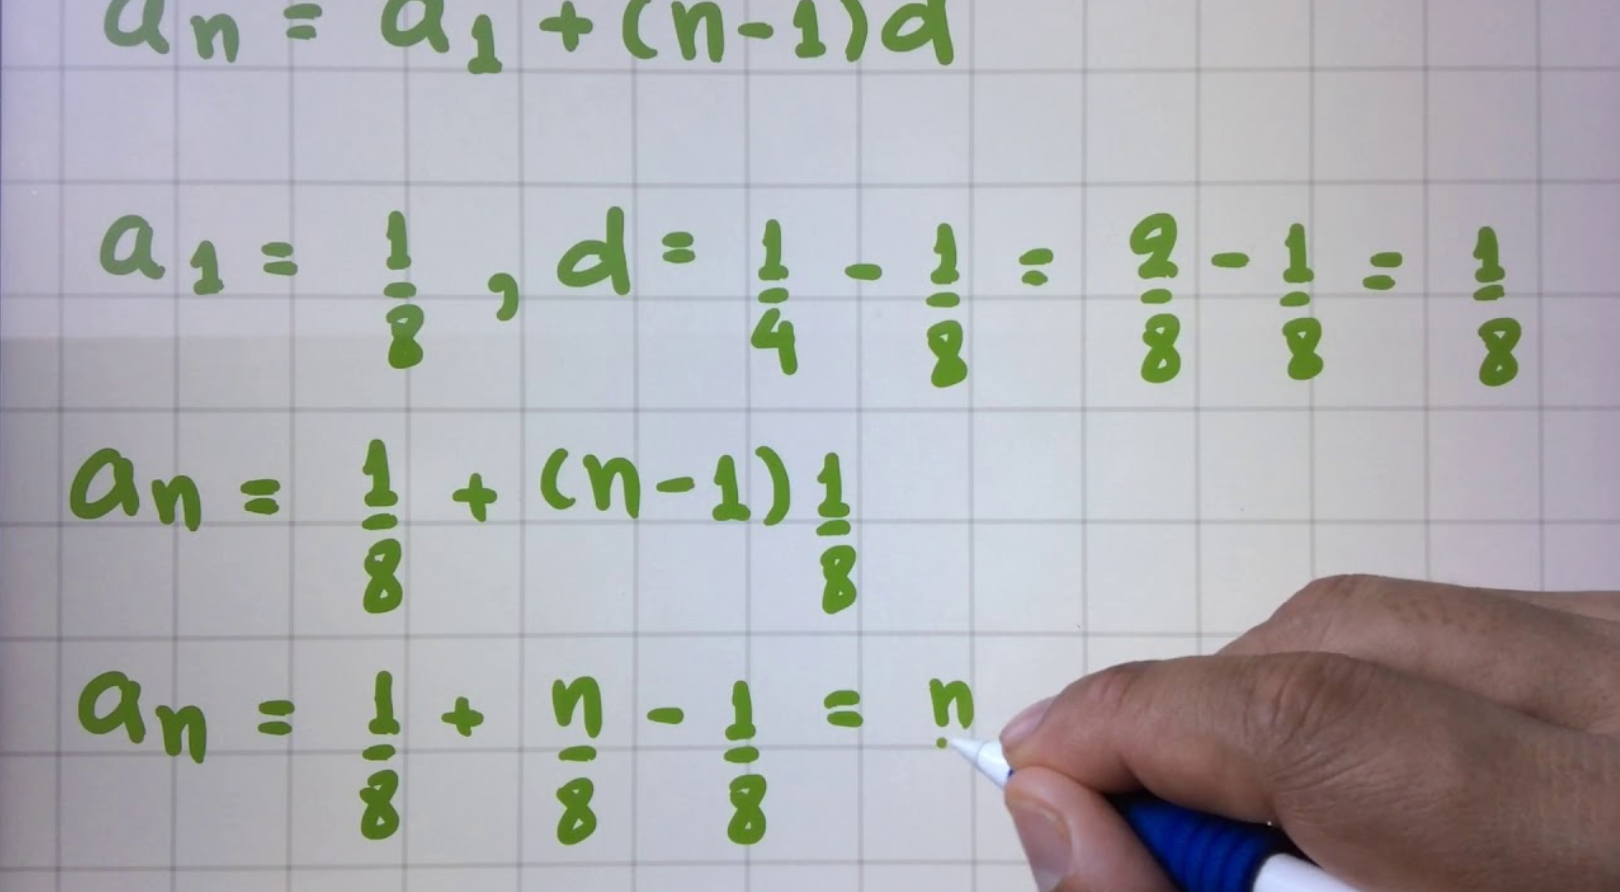 an = a1 + (n-1)d
a1 = 1/8 , d = 1/4 - 1/8 = 2/8 - 1/8 = 1/8
an = 1/8 + (n-1) 1/8
an = 1/8 + n/8 - 1/8 = n